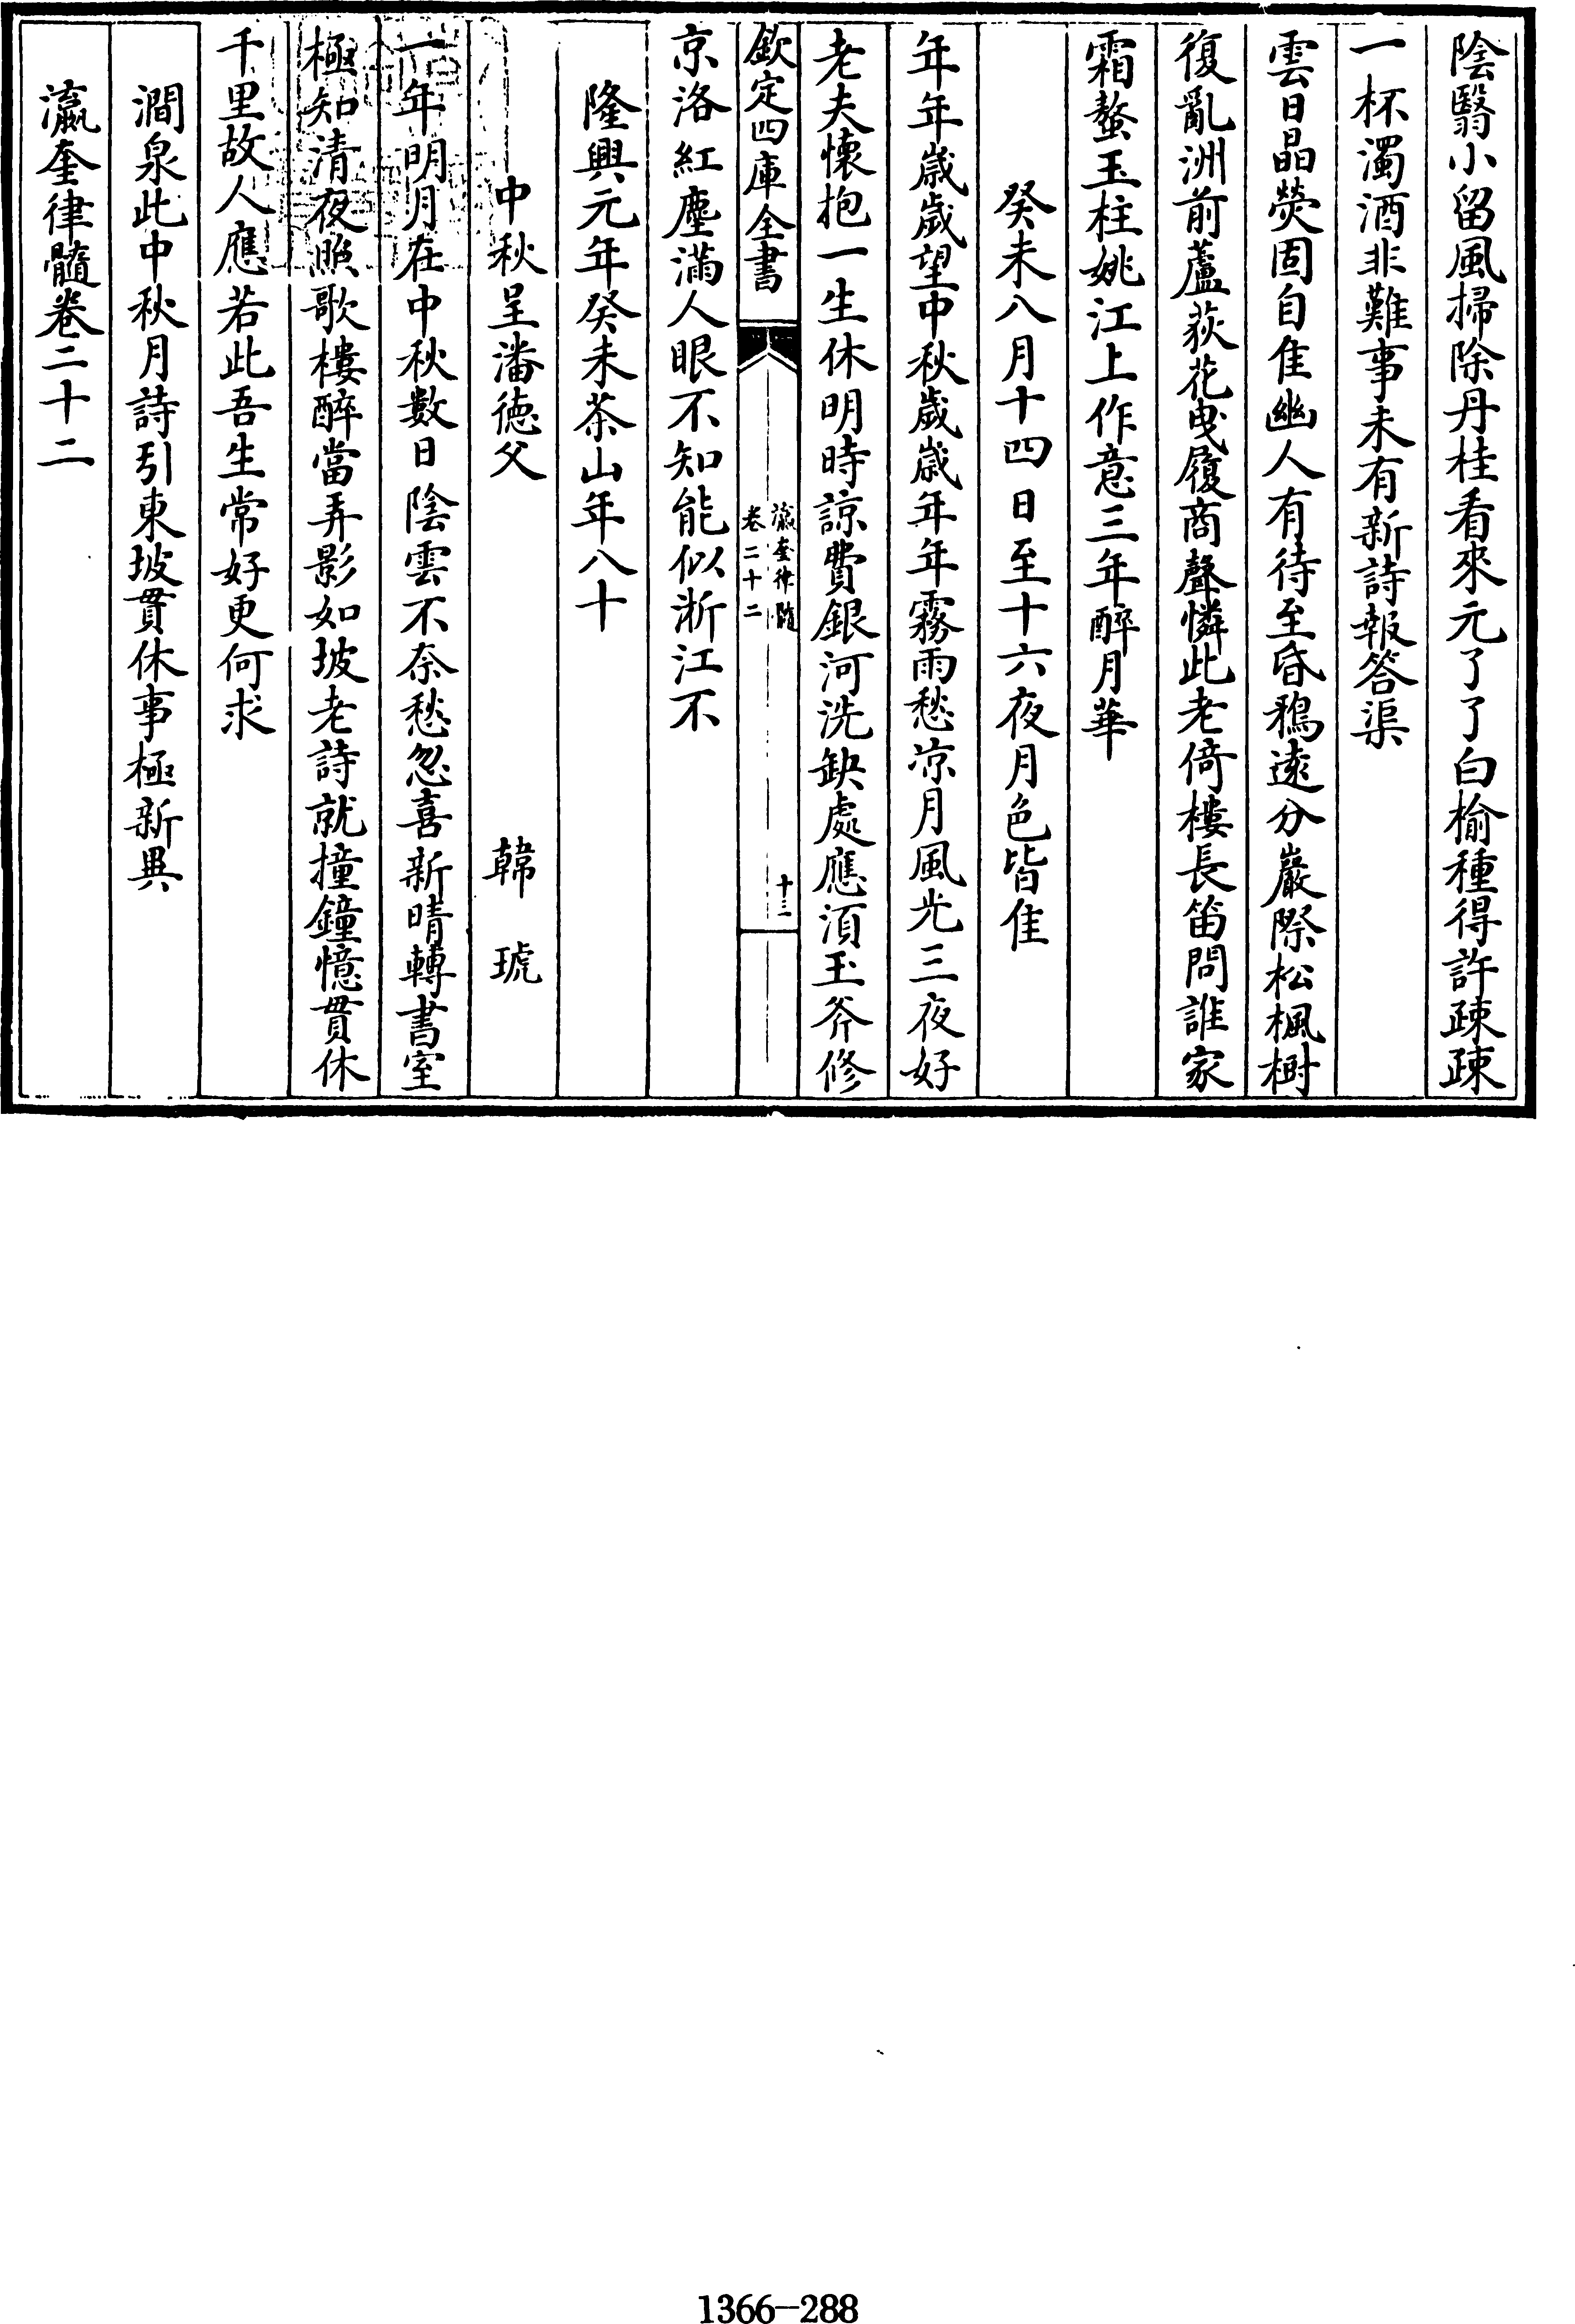 陰翳小留風掃除丹桂看來元了了白榆種得許疎疎
一杯濁酒非難事未有新詩報答渠
雲日晶熒固自佳幽人有待至昏鵶遠分巖際松楓樹
復亂洲前蘆荻花曳履商聲憐此老倚樓長笛問誰家
霜螯玉柱姚江上作意三年醉月華
癸未八月十四日至十六夜月色皆佳
年年歲歲望中秋歲歲年年霧雨愁凉月風光三夜好
老夫懷抱一生休明時諒費銀河洗缺處應須玉斧修
欽定四庫全書
瀛奎律髓
卷二十二
十三
京洛紅塵滿人眼不知能似浙江不
隆興元年癸未茶山年八十
中秋呈潘德父　韓琥
一年明月在中秋數日陰雲不奈愁忽喜新晴轉書室
極知清夜照歌樓醉當弄影如坡老詩就撞鐘憶貫休
千里故人應若此吾生常好更何求
澗泉此中秋月詩引東坡貫休事極新異
瀛奎律髓卷二十二
1366-288